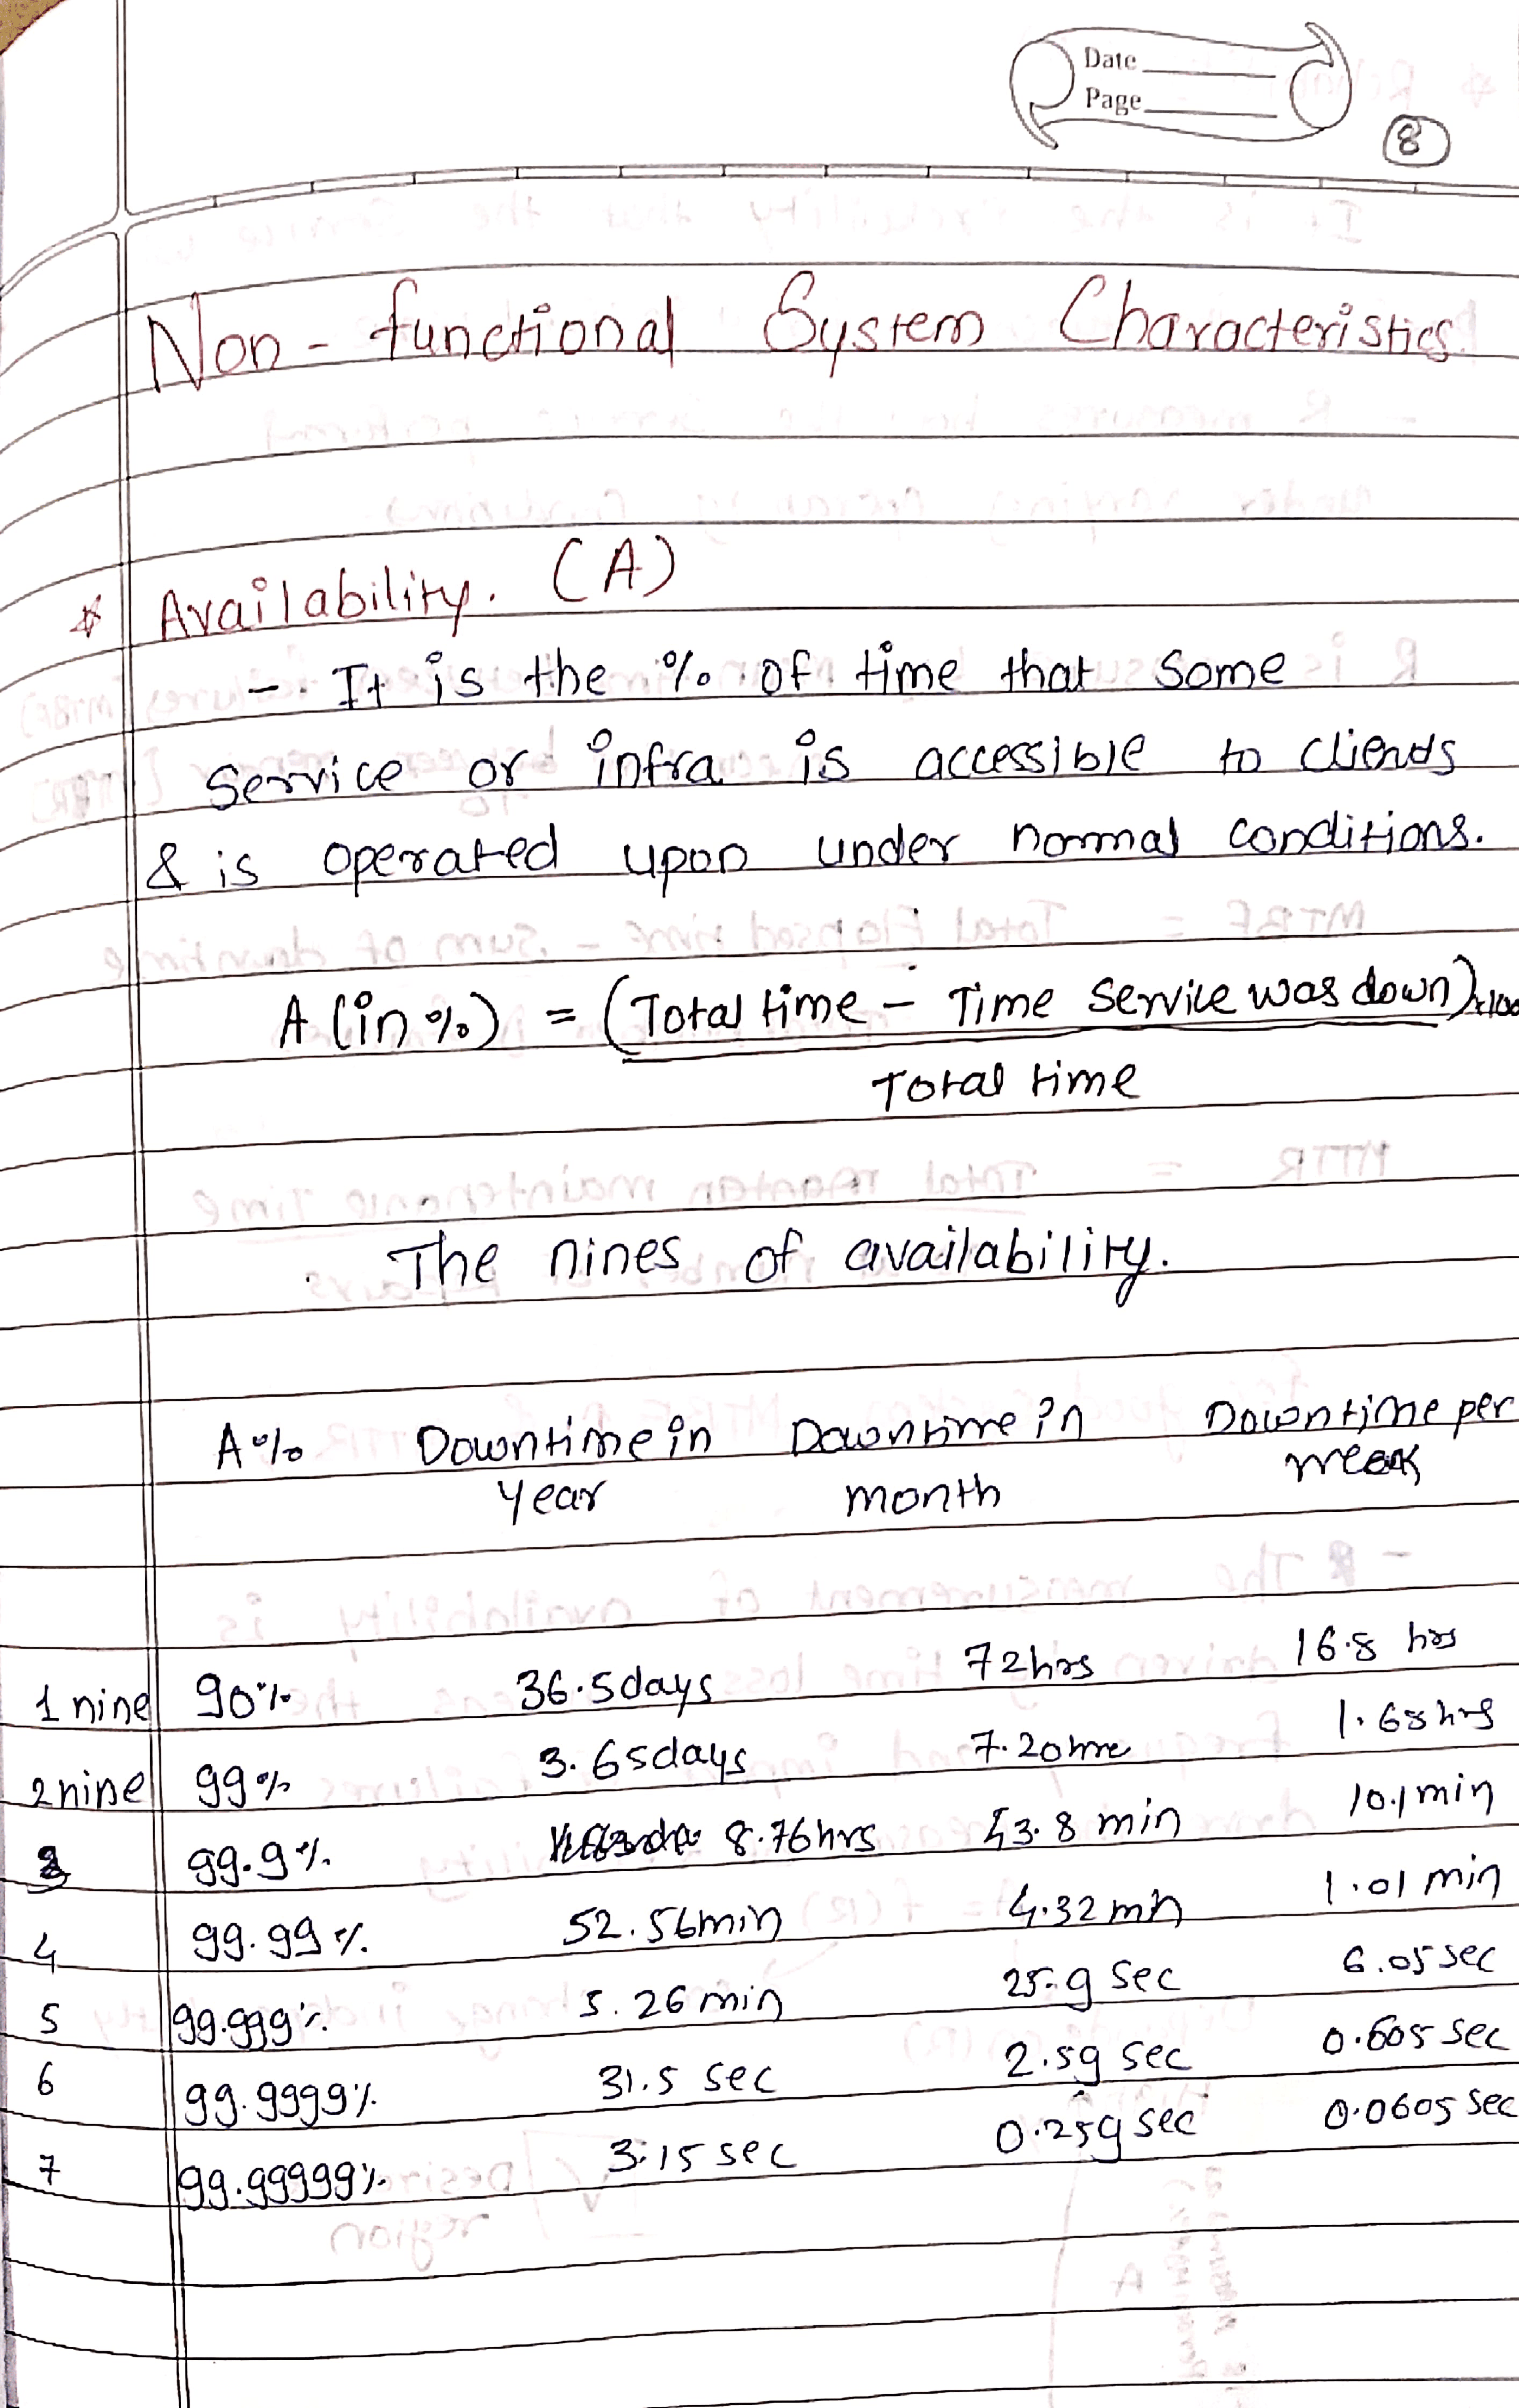 Date
Page
8
Non-functional System Characteristics
* Availability. (A)
- It is the % of time that some
service or infra is accessible to clients
& is operated upon under normal conditions.
A (in %) = (Total time - Time service was down) x100
Total time
The nines of availability.
A% Downtime in Downtime in Downtime per
year month week
1 nine 90% 36.5days 72hrs 16.8 hrs
2nine 99% 3.65days 7.20hrs 1.68hrs
3 99.9% 8.76hrs 43.8 min 10.1min
4 99.99% 52.56min 4.32 min 1.01 min
5 99.999% 5.26min 25.9 sec 6.05 sec
6 99.9999% 31.5 sec 2.59 sec 0.605 sec
7 99.99999% 3.15 sec 0.259 sec 0.0605 sec